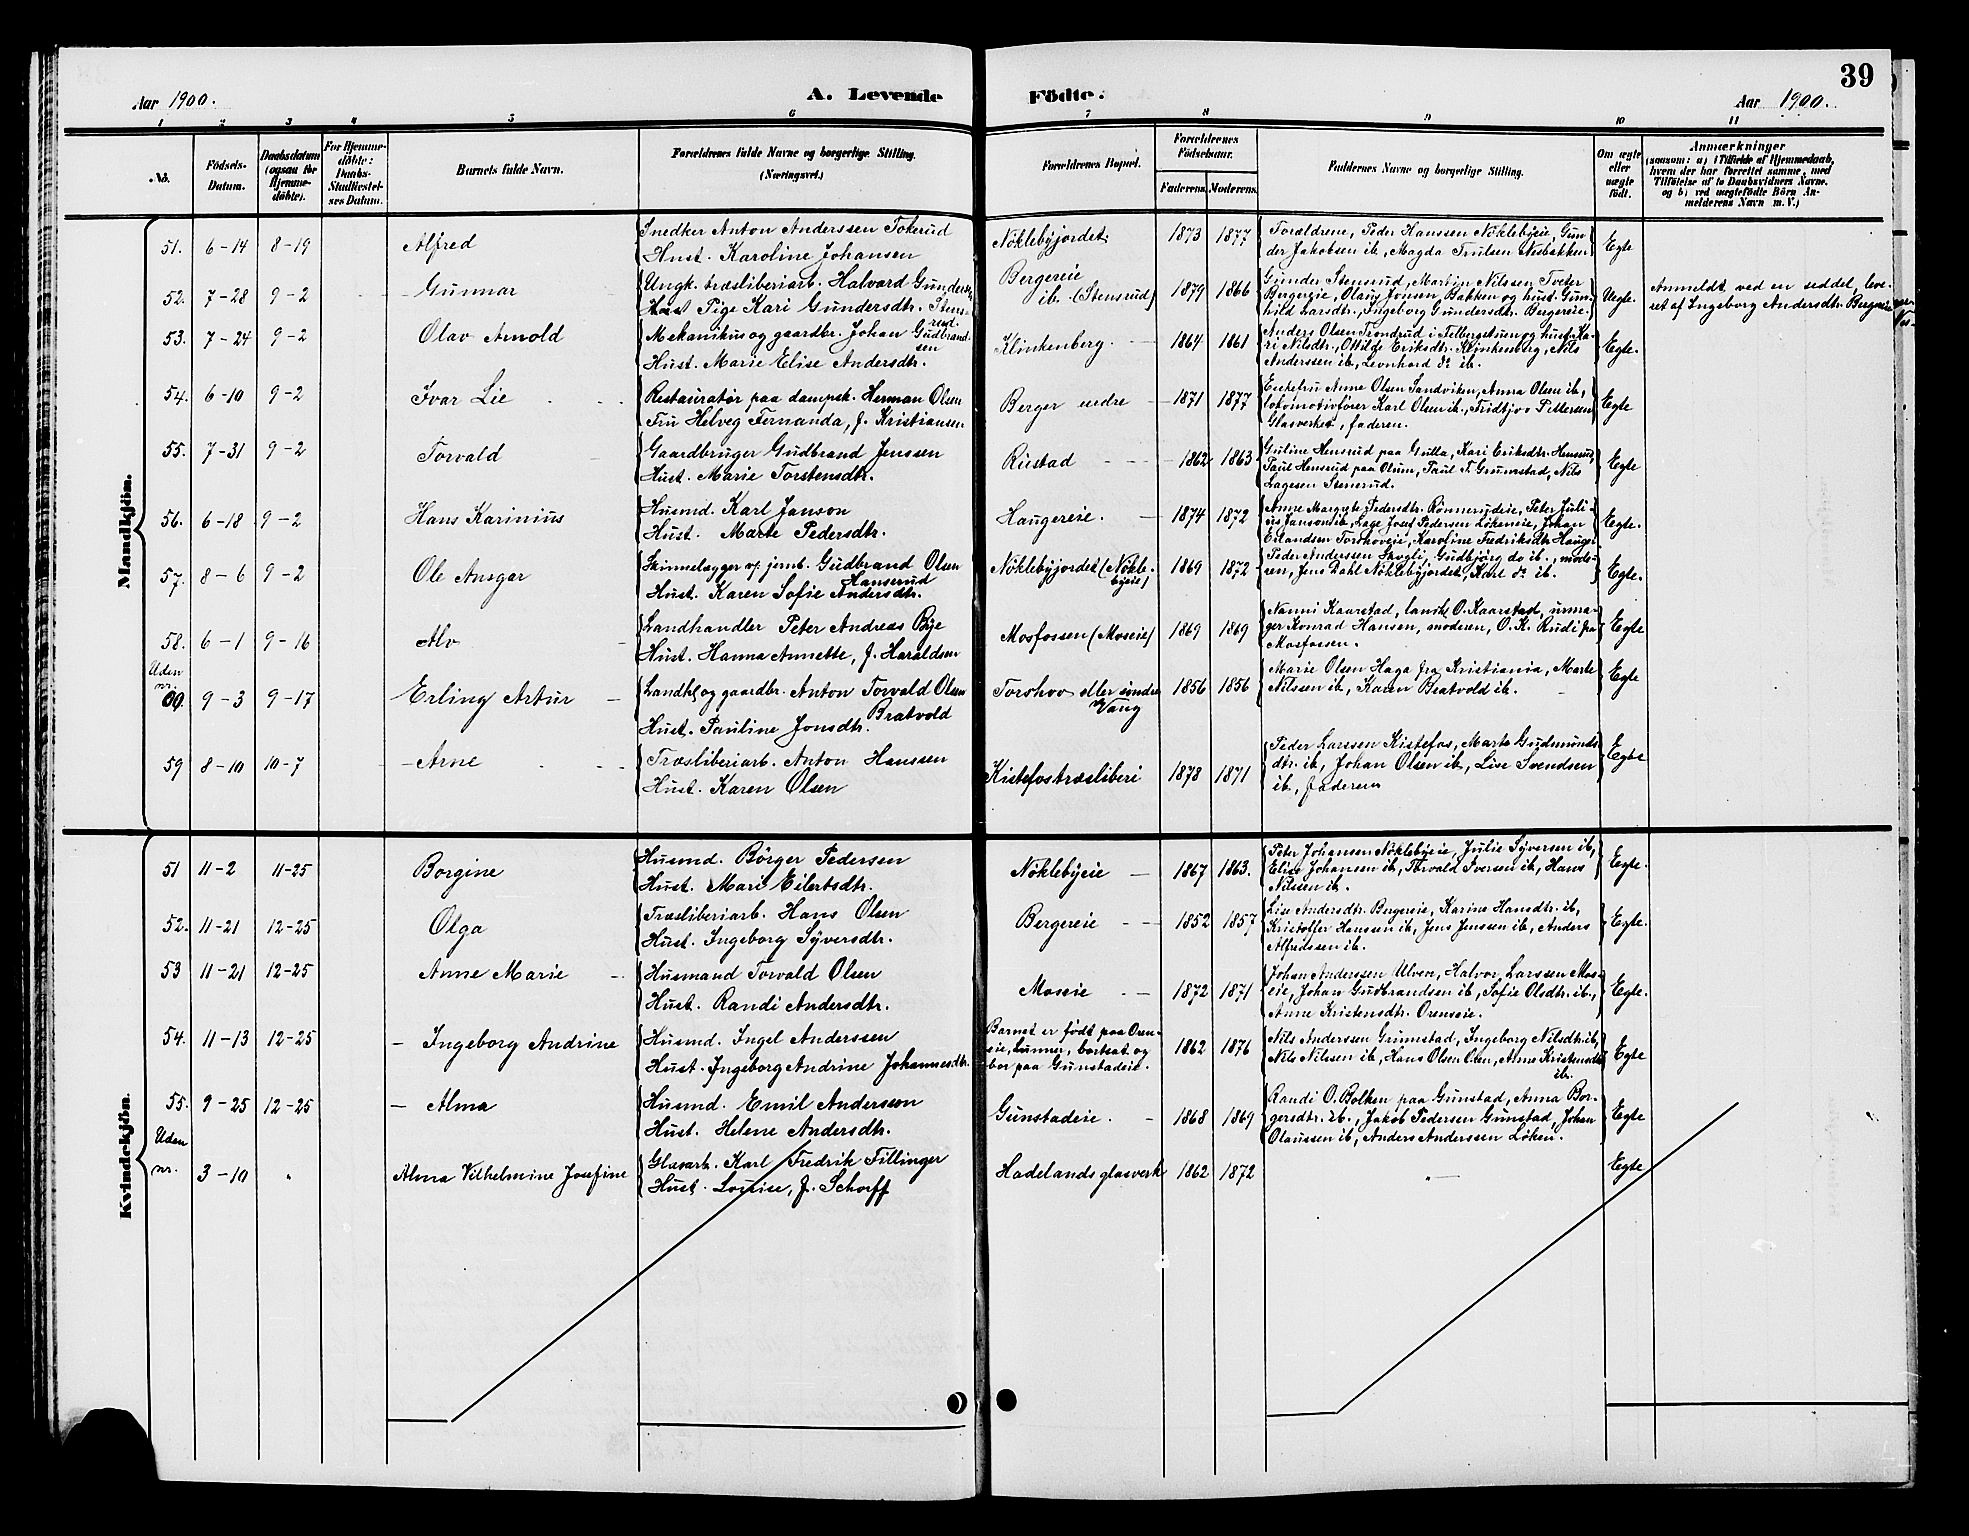 Aar 1900.
A. Levende Födte.
Aar 1900.
39
1 2 3 4 5 6 7 8 9 10 11
No.
Födsels-Datum.
Daabsdatum (ogsaa for Hjemme-döbte).
For Hjemme-döbte: Daabs-Stadfæstel-ses Datum.
Barnets fulde Navn.
Forældrenes fulde Navne og borgerlige Stilling. (Næringsvei.)
Forældrenes Bopæl.
Forældrenes Födselsaar.
Faderens.
Moderens.
Faddernes Navne og borgerlige Stilling.
Om ægte eller uægte födt.
Anmærkninger
(saasom: a) i Tilfælde af Hjemmedaab,
hvem der har forrettet samme, med
Tilföielse af to Daabsvidners Navne,
og b) ved uægtefödte Börn An-
melderens Navn m. V.)
Mandkjön.
51. 6-14 8-19 Alfred
Snedker Anton Anderssen Tokerud
Hust. Karoline Johansen
Nöklebyjordet 1873 1877
Forældrene, Peder Hanssen Nöklebyeie, Gun-
der Jakobsen ib, Magda Trulsen Nesbakken
Egte
52. 7-28 9-2 Gunnar
Ungk. træsliberiarb. Halvard Gundersen
Pige Kari Gundersdtr. Stens-
rud.
Bergereie
ib. (Stensrud) 1879 1866
Gunder Stensrud, Martin Nilssen Tveter
Bergereie, Olaus Jonsen, Bakken og hust. Gun-
hild Larsdtr., Ingeborg Gundersdtr. Bergereie.
Uegte.
Anmeldt ved en seddel, leve-
ret af Ingeborg Andersdtr. Bergereie
53. 7-24 9-2 Olav Arnold
Mekanikus og gaardbr. Johan Gudbrand-
sen
Hust. Marie Elise Andersdtr.
Klinkenberg. 1864 1861
Anders Olsen Trondrud i Tilbergsbun og hust. Ka-
ri Nilsdtr., Otilde Eriksdtr. Klinkenberg, Nils
Anderssen ib, Leonhard do ib.
Egte.
54. 6-10 9-2 Ivar Lie
Restauratør paa dampsk. Herman Olsen
Fru Helveg Fernanda, f. Kristiansen
Berger nedre 1871 1877
Enkefru Anne Olsen Sandviken, Anna Olsen ib,
lokomotivförer Karl Olsen ib., Fridtjov Pettersen
Glasverket, faderen.
Egte
55. 7-31 9-2 Torvald
Gaardbruger Gudbrand Jenssen
Hust. Marie Torstensdtr.
Rustad 1862 1863
Guline Hensrud paa Gulla, Kari Eriksdtr. Hensrud,
Paul Hensrud paa Olum, Paul T. Grumstad, Nils
Lagesen Stensrud.
Egte
56. 6-18 9-2 Hans Karinius
Husmd. Karl Janson
Hust. Marte Pedersdtr.
Haugereie. 1874 1872
Anne Margrete Pedersdtr. Rönnerudeie, Peter Juli-
us Janson ib, Lage Josef Pedersen Lökeneie, Johan
Erlandsen Torshoveie, Karoline Fredriksdtr. Hauger
Egte.
57. 8-6 9-2 Ole Ansgar
Skinnelægger v/ jernb. Gudbrand Olsen
Hansrud
Hust. Karen Sofie Andersdtr.
Nöklebyjordet (Nökle-
byeie) 1869 1872
Peder Anderssen Skogli, Gudbjörg do ib., mode-
ren, Jens Dahl Nöklebyjordet, Karl do ib.
Egte.
58. 6-1 9-16 Alv
Landhandler Peter Andreas Bye
Hust. Hanna Annette, f. Haraldsen
Mosfossen (Moseie) 1869 1869
Nanni Kaarstad, landh. O. Kaarstad, urma-
ger Konrad Hansen, moderen, O. K. Rudi fra
Mosfossen.
Egte
Uden
nr.
9-3 9-17 Erling Artur
Landh. og gaardbr. Anton Torvald Olsen
Bratvold
Hust. Pauline Jonsdtr.
Torshov eller söndre
Vang 1856 1856
Marie Olsen Haga fra Kristiania, Marte
Nilssen ib, Karen Bratvold ib.
Egte
59 8-10 10-7 Arne
Træsliberiarb. Anton Hanssen
Hust. Karen Olsen
Kistefostræsliberi 1878 1871
Peder Larssen Kistefos, Marte Gudmunds-
dtr. ib, Johan Olsen ib, Live Svendsen
ib, faderen
Egte
Kvindekjön.
51 11-2 11-25 Borgine
Husmd. Börger Pedersen
Hust. Mari Eilertsdtr.
Nöklebyeie 1867 1863.
Peter Johansen Nöklebyeie, Julie Syversen ib,
Elise Johansen ib, Torvald Iversen ib, Hans
Nilsen ib.
Egte.
52. 11-21 12-25 Olga
Træsliberiarb. Hans Olsen
Hust. Ingeborg Syversdtr.
Bergereie 1852 1857
Lise Andersdtr. Bergereie, Karine Hansdtr. ib,
Kristoffer Hanssen ib, Jens Jenssen ib, Anders
Alfredssen ib.
Egte.
53 11-21 12-25 Anne Marie
Husmand Torvald Olsen
Hust. Randi Andersdtr.
Moseie 1872 1871
Johan Anderssen Ulven, Halvor Larssen Mos-
eie, Johan Gudbrandsen ib, Sofie Olsdtr. ib.,
Anne Kristensdtr. Orenseie.
Egte.
54. 11-13 12-25 Ingeborg Andrine
Husmd. Ingel Anderssen
Hust. Ingeborg Andrine Johannesdtr.
Barnet er födt paa Oren-
eie, Lunner, bortsat og
bor paa Gunstadeie. 1862 1876
Nils Anderssen Grumstad, Ingeborg Nilsdtr. ib,
Nils Nilsen ib, Hans Olsen Olen, Anne Kristensdtr.
ib.
Egte
55. 9-25 12-25 Alma
Husmd. Emil Andersson
Hust. Helene Andersdtr.
Gunstadeie. 1868 1869
Randi O. Bolken paa Gunstad, Anna Bor-
gersdtr. ib., Jakob Pedersen Gunstad, Johan
Olaussen ib, Anders Anderssen Löken.
Egte
Uden
nr. 3-10 " Alma Vilhelmine Josefine
Glasarb. Karl Fredrik Fillinger
Hust. Louise, f. Schorff
Hadelands glasverk 1862 1872
"
Egte